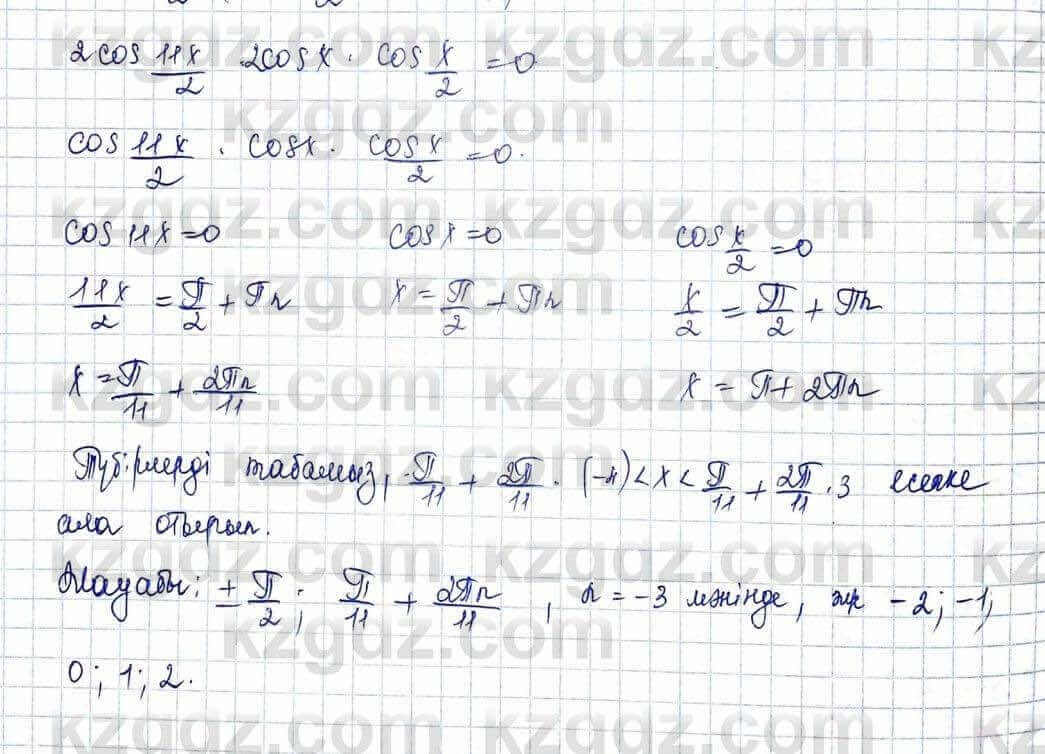 2cos 11x/2 · 2cosx · cos x/2 = 0
cos 11x/2 · cosx · cosx/2 = 0.
cos 11x = 0 cosx = 0 cos x/2 = 0
11x/2 = П/2 + Пn x = П/2 + Пn x/2 = П/2 + Пn
x = П/11 + 2Пn/11 x = П + 2Пn
Түбірлерді табамыз, -П/11 + 2П/11 · (-4) < x < П/11 + 2П/11 · 3 есепке
ала отырып.
Жауабы: ± П/2; П/11 + 2Пn/11, n = -3 мәнінде, -2; -1;
0; 1; 2.
kzgdz.com